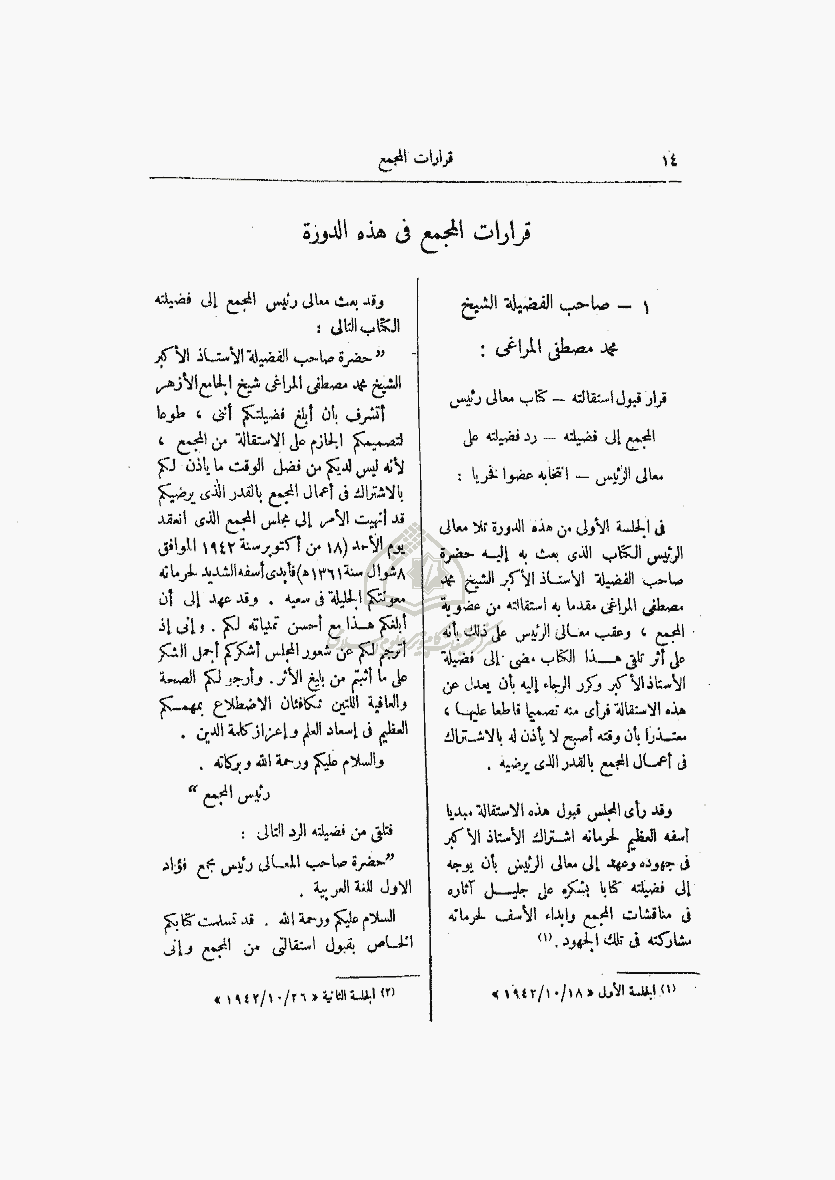 ١٤
قرارات المجمع
قرارات المجمع فى هذه الدورة
١ – صاحب الفضيلة الشيخ
محمد مصطفى المراغى :
قرار قبول استقالته – كتاب معالى رئيس
المجمع إلى فضيلته – رد فضيلته على
معالى الرئيس – انتخابه عضوا فخريا :
فى الجلسة الأولى من هذه الدورة تلا معالى
الرئيس الكتاب الذى بعث به إليه حضرة
صاحب الفضيلة الأستاذ الأكبر الشيخ محمد
مصطفى المراغى مقدما به استقالته من عضوية
المجمع ، وعقب معالى الرئيس على ذلك بأنه
على أثر تلقى هذا الكتاب مضى إلى فضيلة
الأستاذ الأكبر وكرر الرجاء إليه بأن يعدل عن
هذه الاستقالة فرأى منه تصميما قاطعا عليها ،
معتذرا بأن وقته أصبح لا يأذن له بالاشتراك
فى أعمال المجمع بالقدر الذى يرضيه .
وقد رأى المجلس قبول هذه الاستقالة مبديا
أسفه العظيم لحرمانه اشتراك الأستاذ الأكبر
فى جهوده وعهد إلى معالى الرئيس بأن يوجه
إلى فضيلته كتابا بشكره على جليل آثاره
فى مناقشات المجمع وإبداء الأسف لحرمانه
مشاركته فى تلك الجهود .(١)
(١) الجلسة الأولى « ١٩٤٢/١٠/١٨ »
وقد بعث معالى رئيس المجمع إلى فضيلته
الكتاب التالى :
” حضرة صاحب الفضيلة الأستاذ الأكبر
الشيخ محمد مصطفى المراغى شيخ الجامع الأزهر
أتشرف بأن أبلغ فضيلتكم أننى ، طوعا
لتصميمكم الجازم على الاستقالة من المجمع ،
لأنه ليس لديكم من فضل الوقت ما يأذن لكم
بالاشتراك فى أعمال المجمع بالقدر الذى يرضيكم
قد أنهيت الأمر إلى مجلس المجمع الذى انعقد
يوم الأحد (١٨ من أكتوبر سنة ١٩٤٢ الموافق
٨ شوال سنة ١٣٦١ ه) فأبدى أسفه الشديد لحرمانه
معونتكم الجليلة فى سعيه . وقد عهد إلى أن
أبلغكم هذا مع أحسن تمنياته لكم . وإنى إذ
أترجم لكم عن شعور المجلس أشكركم أجمل الشكر
على ما أثبتم من بليغ الأثر . وأرجو لكم الصحة
والعافية اللتين تكافئان الاضطلاع بمهمكم
العظيم فى إسعاد العلم وإعزاز كلمة الدين .
والسلام عليكم ورحمة الله وبركاته .
رئيس المجمع “
فتلقى من فضيلته الرد التالى :
”حضرة صاحب المعالى رئيس مجمع فؤاد
الاول للغة العربية .
السلام عليكم ورحمة الله . قد تسلمت كتابكم
الخاص بقبول استقالتى من المجمع وإنى
(٢) الجلسة الثانية « ١٩٤٢/١٠/٢٦ »